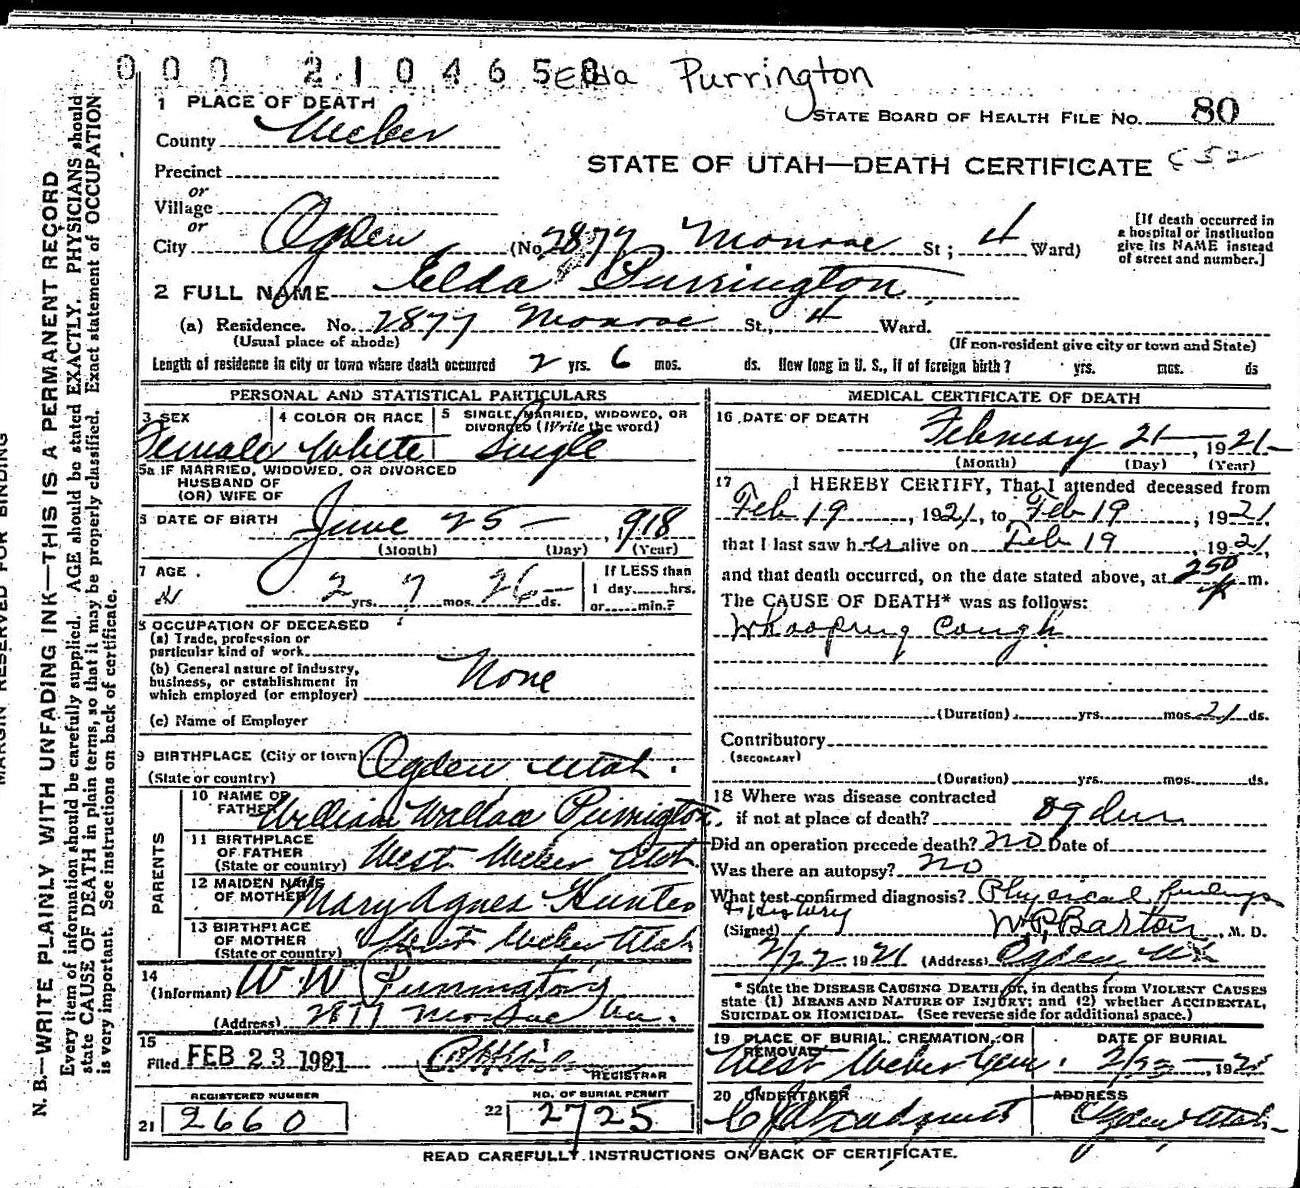 000 2104658
Elda Purrington
1 PLACE OF DEATH
STATE BOARD OF HEALTH FILE NO. 80
County Weber
STATE OF UTAH—DEATH CERTIFICATE
Precinct
or
Village
or
City Ogden (No. 2877 Monroe St; 4 Ward)
[If death occurred in
a hospital or institution
give its NAME instead
of street and number.]
2 FULL NAME Elda Purrington
(a) Residence. No. 2877 Monroe St., 4 Ward.
(Usual place of abode) (If non-resident give city or town and State)
Length of residence in city or town where death occurred 2 yrs. 6 mos. ds. How long in U. S., if of foreign birth? yrs. mos. ds
PERSONAL AND STATISTICAL PARTICULARS
3 SEX 4 COLOR OR RACE 5 SINGLE, MARRIED, WIDOWED, OR
DIVORCED (Write the word)
Female White Single
5a IF MARRIED, WIDOWED, OR DIVORCED
HUSBAND OF
(OR) WIFE OF
6 DATE OF BIRTH June 25 — , 918
(Month) (Day) (Year)
7 AGE 2 yrs. 7 mos. 26 ds.
If LESS than
1 day hrs.
or min.?
8 OCCUPATION OF DECEASED
(a) Trade, profession or
particular kind of work
(b) General nature of industry,
business, or establishment in
which employed (or employer) None
(c) Name of Employer
9 BIRTHPLACE (City or town) Ogden Utah.
(State or country)
PARENTS
10 NAME OF
FATHER William Wallace Purrington
11 BIRTHPLACE
OF FATHER
(State or country) West Weber Utah
12 MAIDEN NAME
OF MOTHER Mary Agnes Hunter
13 BIRTHPLACE
OF MOTHER
(State or country) West Weber Utah
14
(Informant) W W Purrington
(Address) 2877 Monroe Ave.
15
Filed FEB 23 1921
REGISTRAR
REGISTERED NUMBER
21 2660
NO. OF BURIAL PERMIT
22 2725
MEDICAL CERTIFICATE OF DEATH
16 DATE OF DEATH February 21 — , 1921
(Month) (Day) (Year)
17 I HEREBY CERTIFY, That I attended deceased from
Feb 19 , 1921, to Feb 19 , 1921
that I last saw her alive on Feb 19 , 1921,
and that death occurred, on the date stated above, at 250 P m.
The CAUSE OF DEATH* was as follows:
Whooping Cough
(Duration) yrs. mos. 21 ds.
Contributory
(SECONDARY)
(Duration) yrs. mos. ds.
18 Where was disease contracted
if not at place of death? Ogden
Did an operation precede death? No Date of
Was there an autopsy? No
What test confirmed diagnosis? Physical findings
& History
(Signed) W.P. Barton, M. D.
2/22 1921 (Address) Ogden Ut
* State the DISEASE CAUSING DEATH, or, in deaths from VIOLENT CAUSES
state (1) MEANS AND NATURE OF INJURY; and (2) whether ACCIDENTAL,
SUICIDAL OR HOMICIDAL. (See reverse side for additional space.)
19 PLACE OF BURIAL, CREMATION, OR
REMOVAL DATE OF BURIAL
West Weber Cem. 2/23, 1921
20 UNDERTAKER ADDRESS
Ogden Utah
READ CAREFULLY INSTRUCTIONS ON BACK OF CERTIFICATE.
MARGIN RESERVED FOR BINDING
N. B.—WRITE PLAINLY WITH UNFADING INK—THIS IS A PERMANENT RECORD
Every item of information should be carefully supplied. AGE should be stated EXACTLY. PHYSICIANS should
state CAUSE OF DEATH in plain terms, so that it may be properly classified. Exact statement of OCCUPATION
is very important. See instructions on back of certificate.